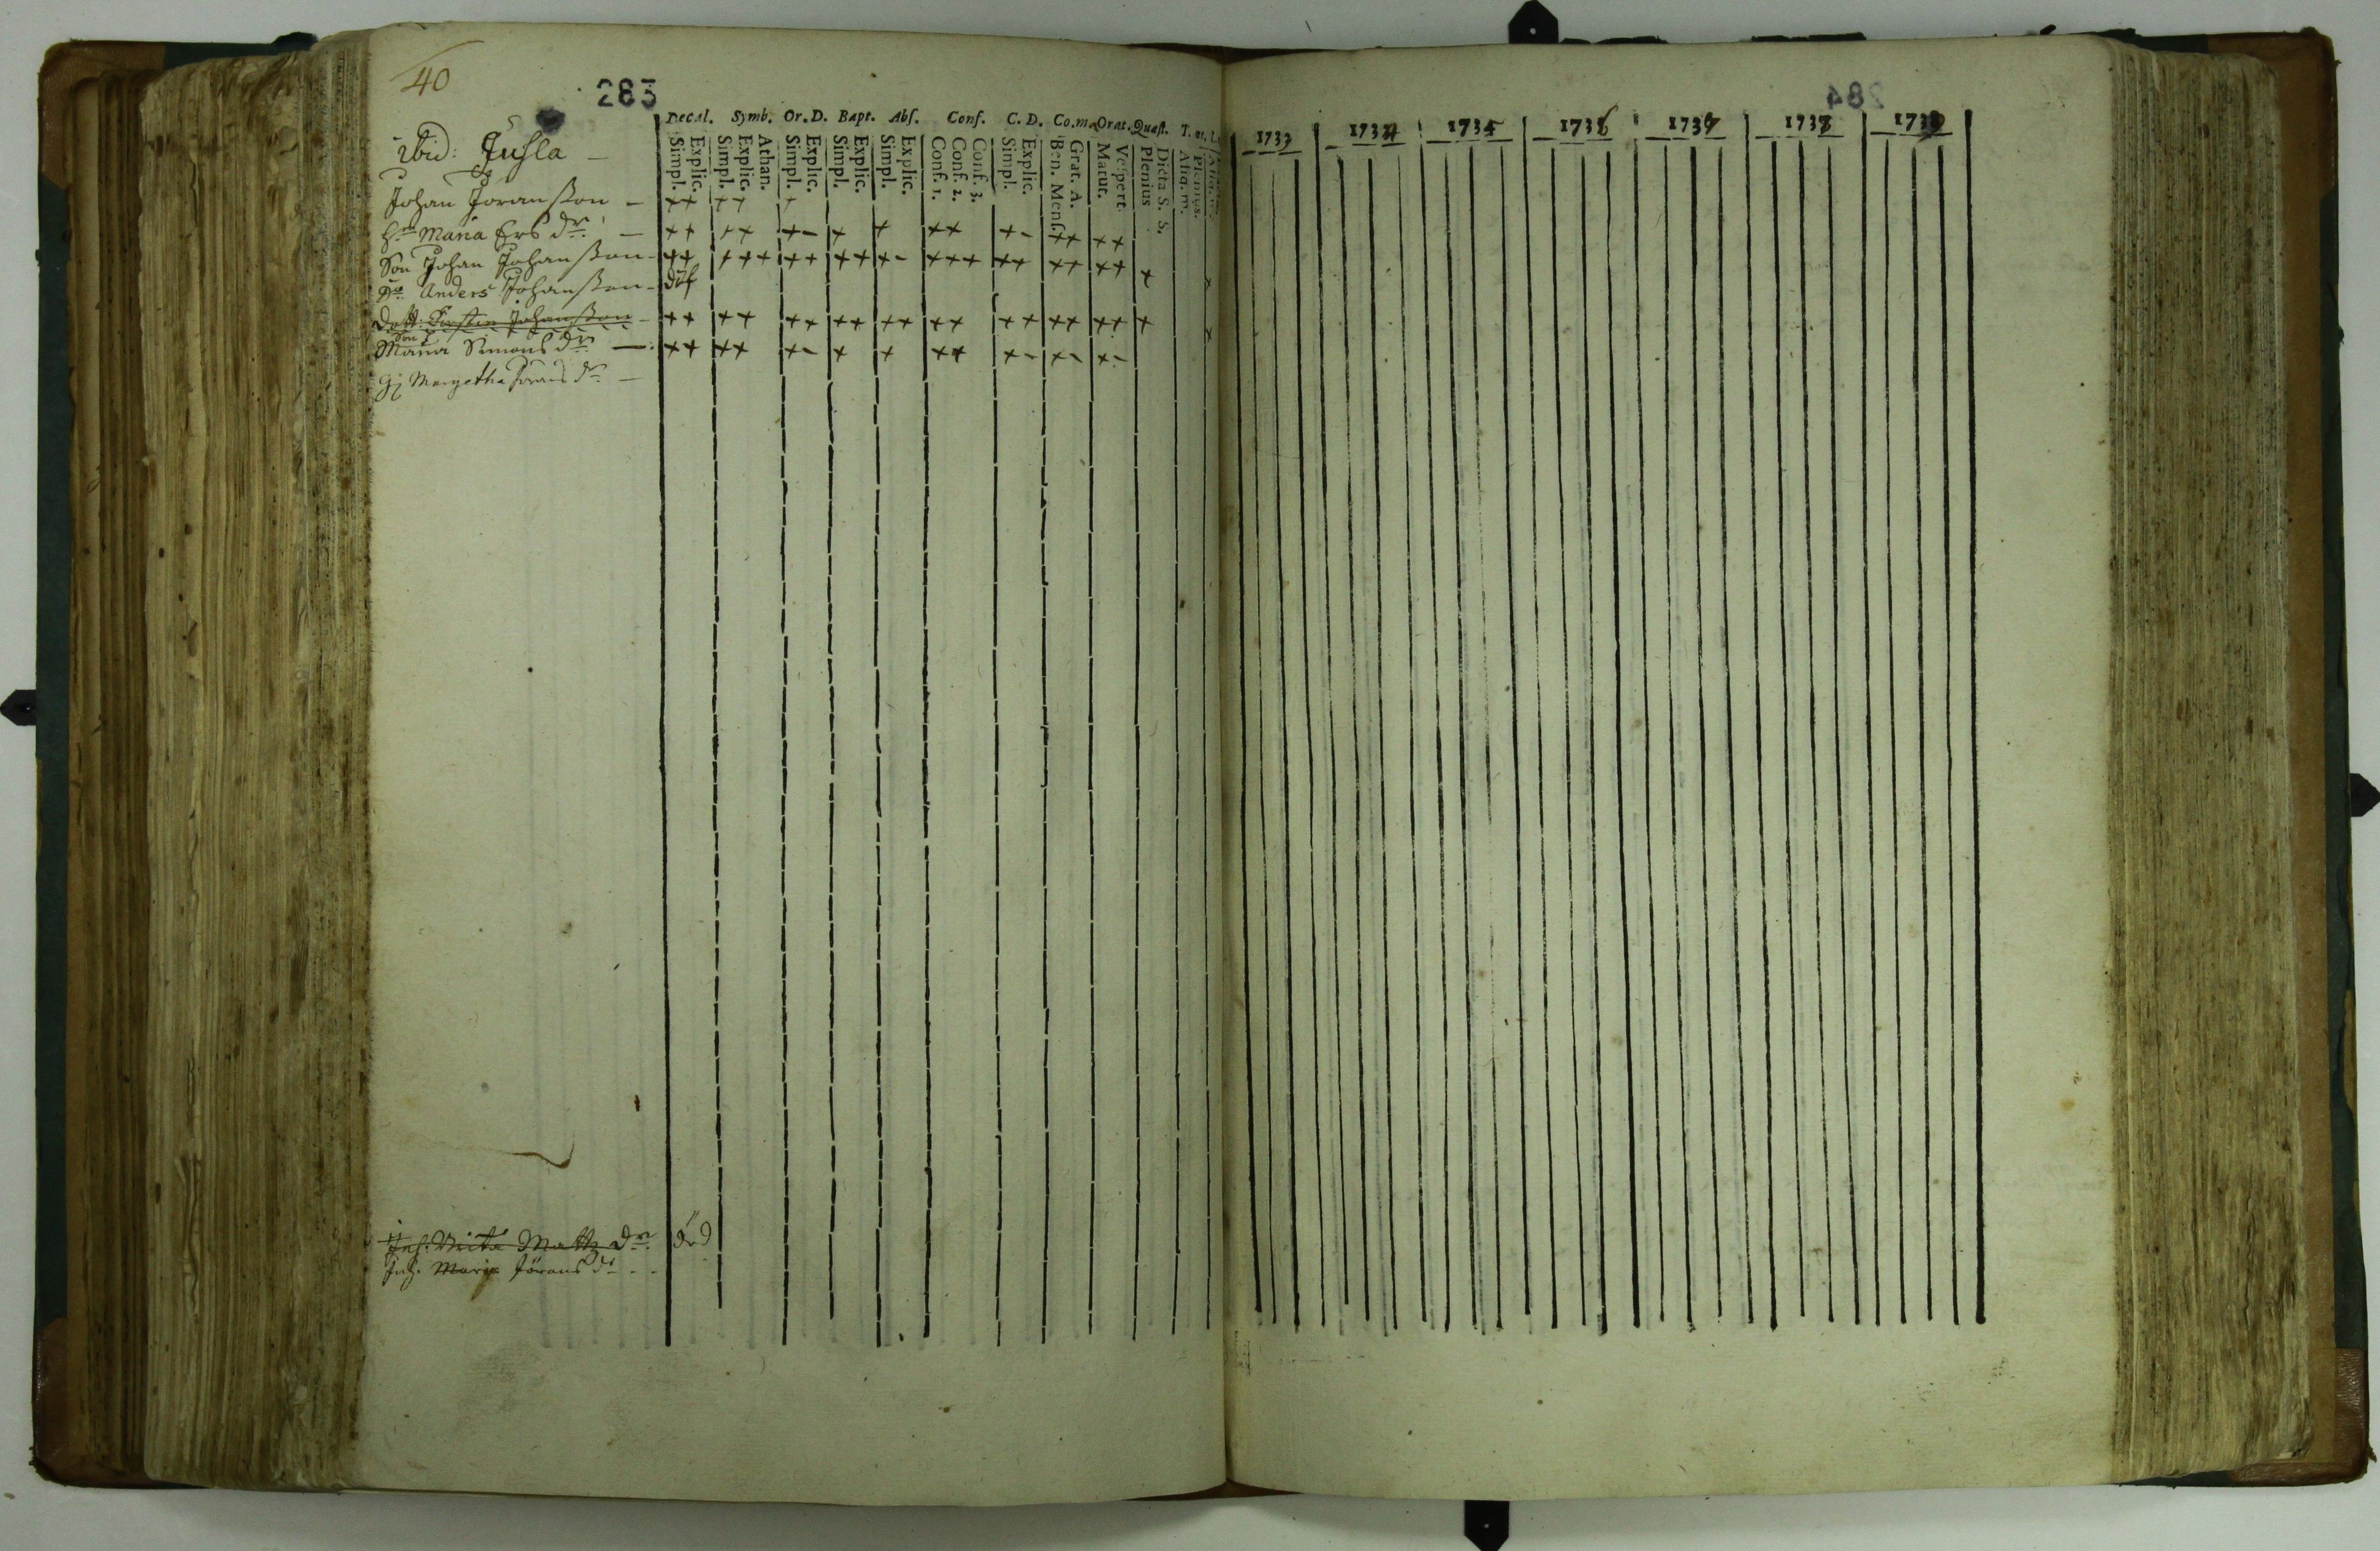 40
283
Decal. Symb. Or. D. Bapt. Abs. Conf. C. D. Co.m. Orat. Quæst. T. æ.
Simpl. Explic. Simpl. Explic. Athan. Simpl. Explic. Simpl. Explic. Simpl. Explic. Conf. 1. Conf. 2. Conf. 3. Simpl. Explic. Ben. Mens. Grat. A. Matut. Vespert. Plenius Dicta S. S. Aliq. m. Plenius.
ibid: Juhla –
Johan Joransson – ++ ++ +
H:n Maria Ers dr: – ++ ++ +– + + ++ +– ++ ++
Son Johan Johansson – ++ +++ ++ ++ +– +++ ++ ++ ++ + +
Do Anders Johansson – döf
Dott: Kirstin Johansson – ++ ++ ++ ++ ++ ++ ++ ++ ++ + +
Maria Simons dr – ++ ++ +– + + ++ +– +– +–
Margetha Jörans dr –
Inh. Matts dr: död
Inh. Maria Jörans dr - -
284
1733 1734 1735 1736 1737 1738 1739